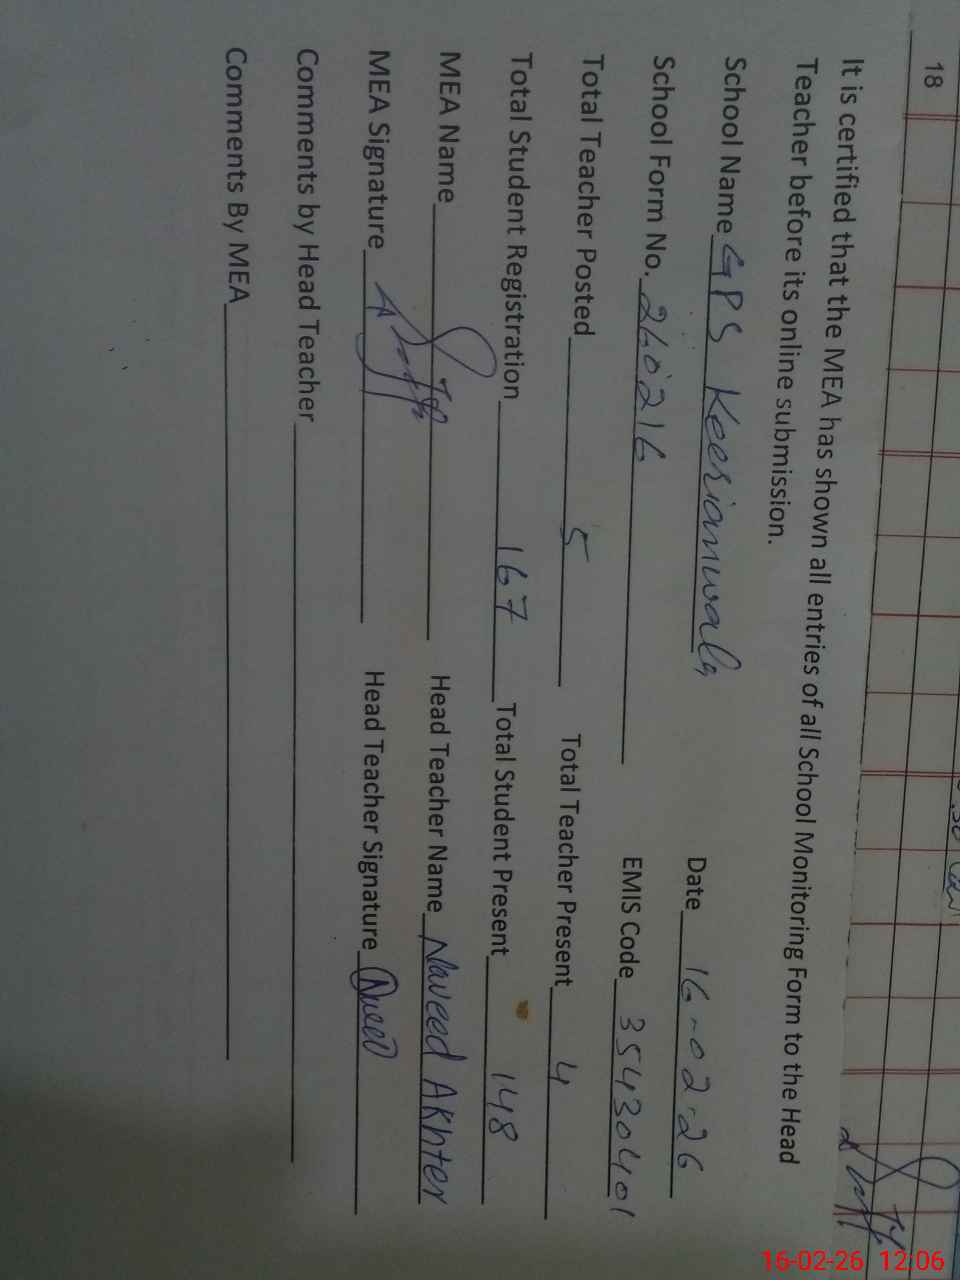 18
It is certified that the MEA has shown all entries of all School Monitoring Form to the Head
Teacher before its online submission.
School Name GPS Keerianwala Date 16-02-26
School Form No. 260216 EMIS Code 35430401
Total Teacher Posted 5 Total Teacher Present 4
Total Student Registration 167 Total Student Present 148
MEA Name Head Teacher Name Naveed Akhter
MEA Signature Head Teacher Signature
Comments by Head Teacher
Comments By MEA
16-02-26 12:06